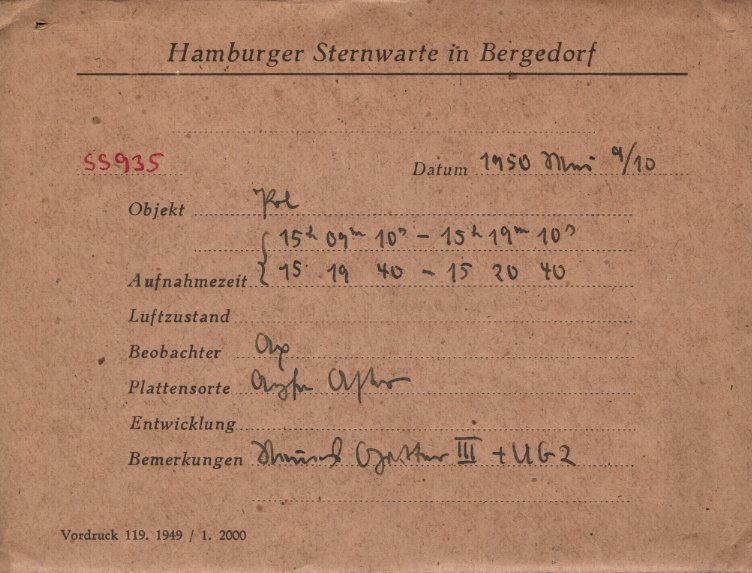 Hamburger Sternwarte in Bergedorf
SS935
Datum 1950 Mai 9/10
Objekt Pol
15h 09m 10s - 15h 19m 10s
Aufnahmezeit 15 19 40 - 15 20 40
Luftzustand
Beobachter
Plattensorte Agfa Astro
Entwicklung
Bemerkungen III + UG2
Vordruck 119. 1949 / 1. 2000